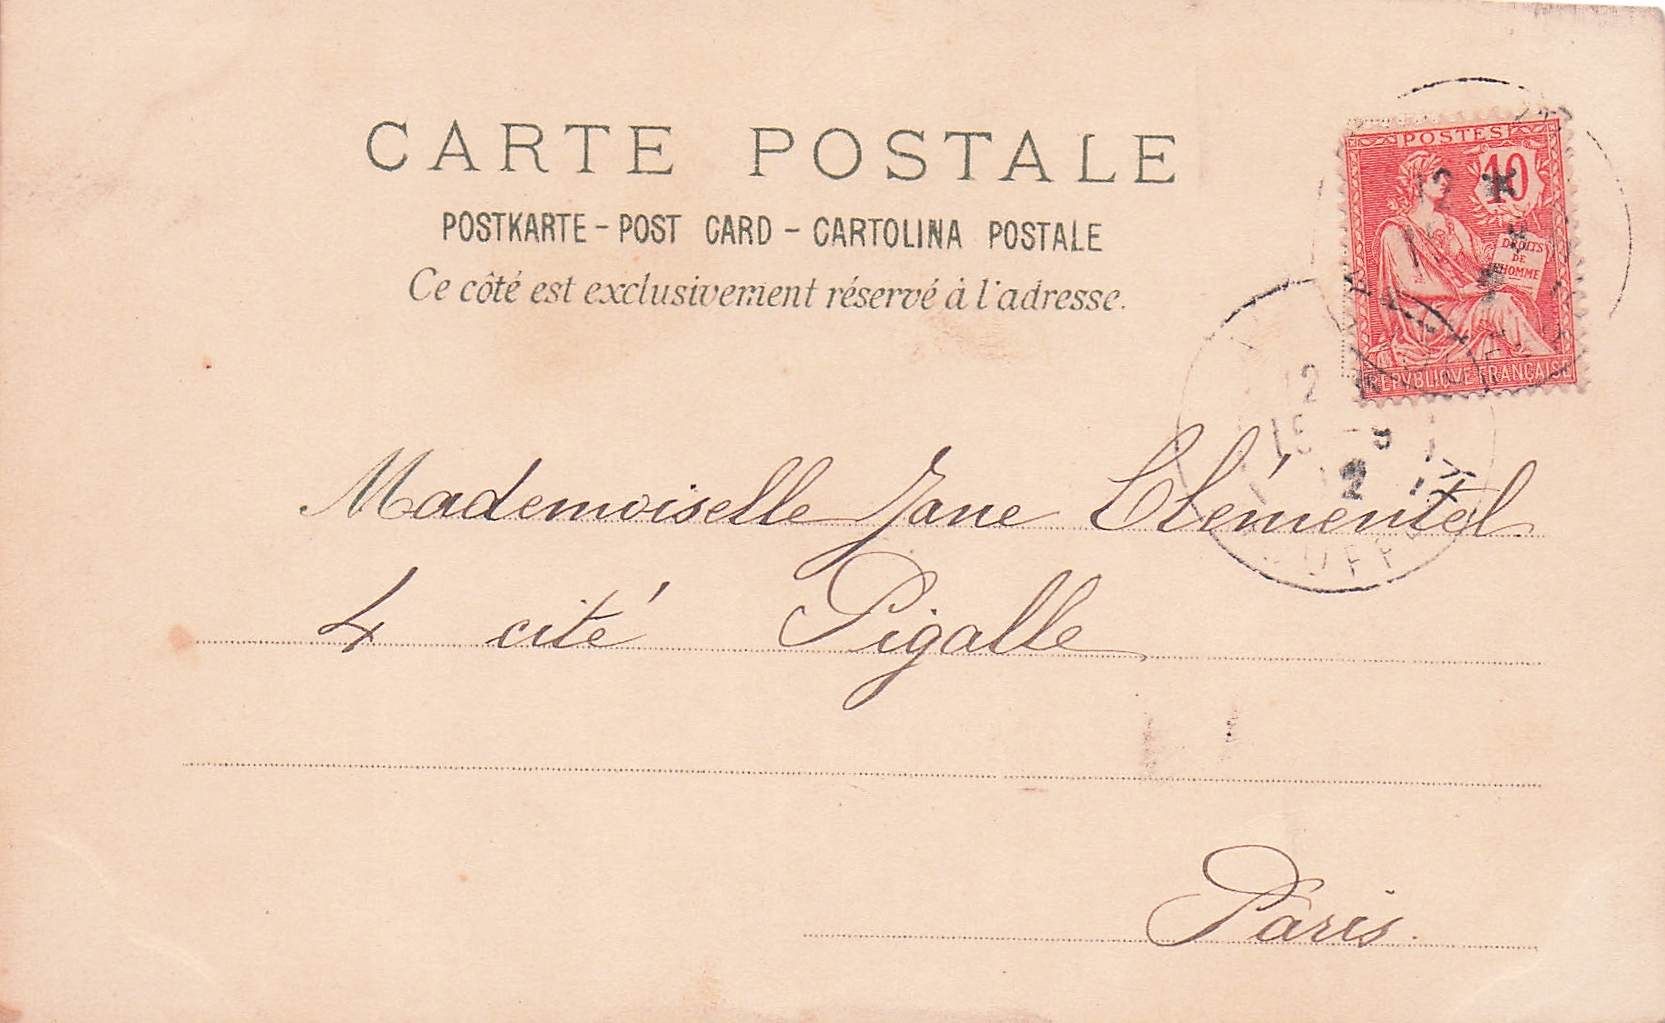 CARTE POSTALE
POSTKARTE - POST CARD - CARTOLINA POSTALE
Ce côté est exclusivement réservé à l'adresse.
POSTES
10
DROITS
DE
L'HOMME
REPVBLIQVE FRANÇAISE
12
12
15
Mademoiselle Jane Clémentel
4 cité Pigalle
Paris.